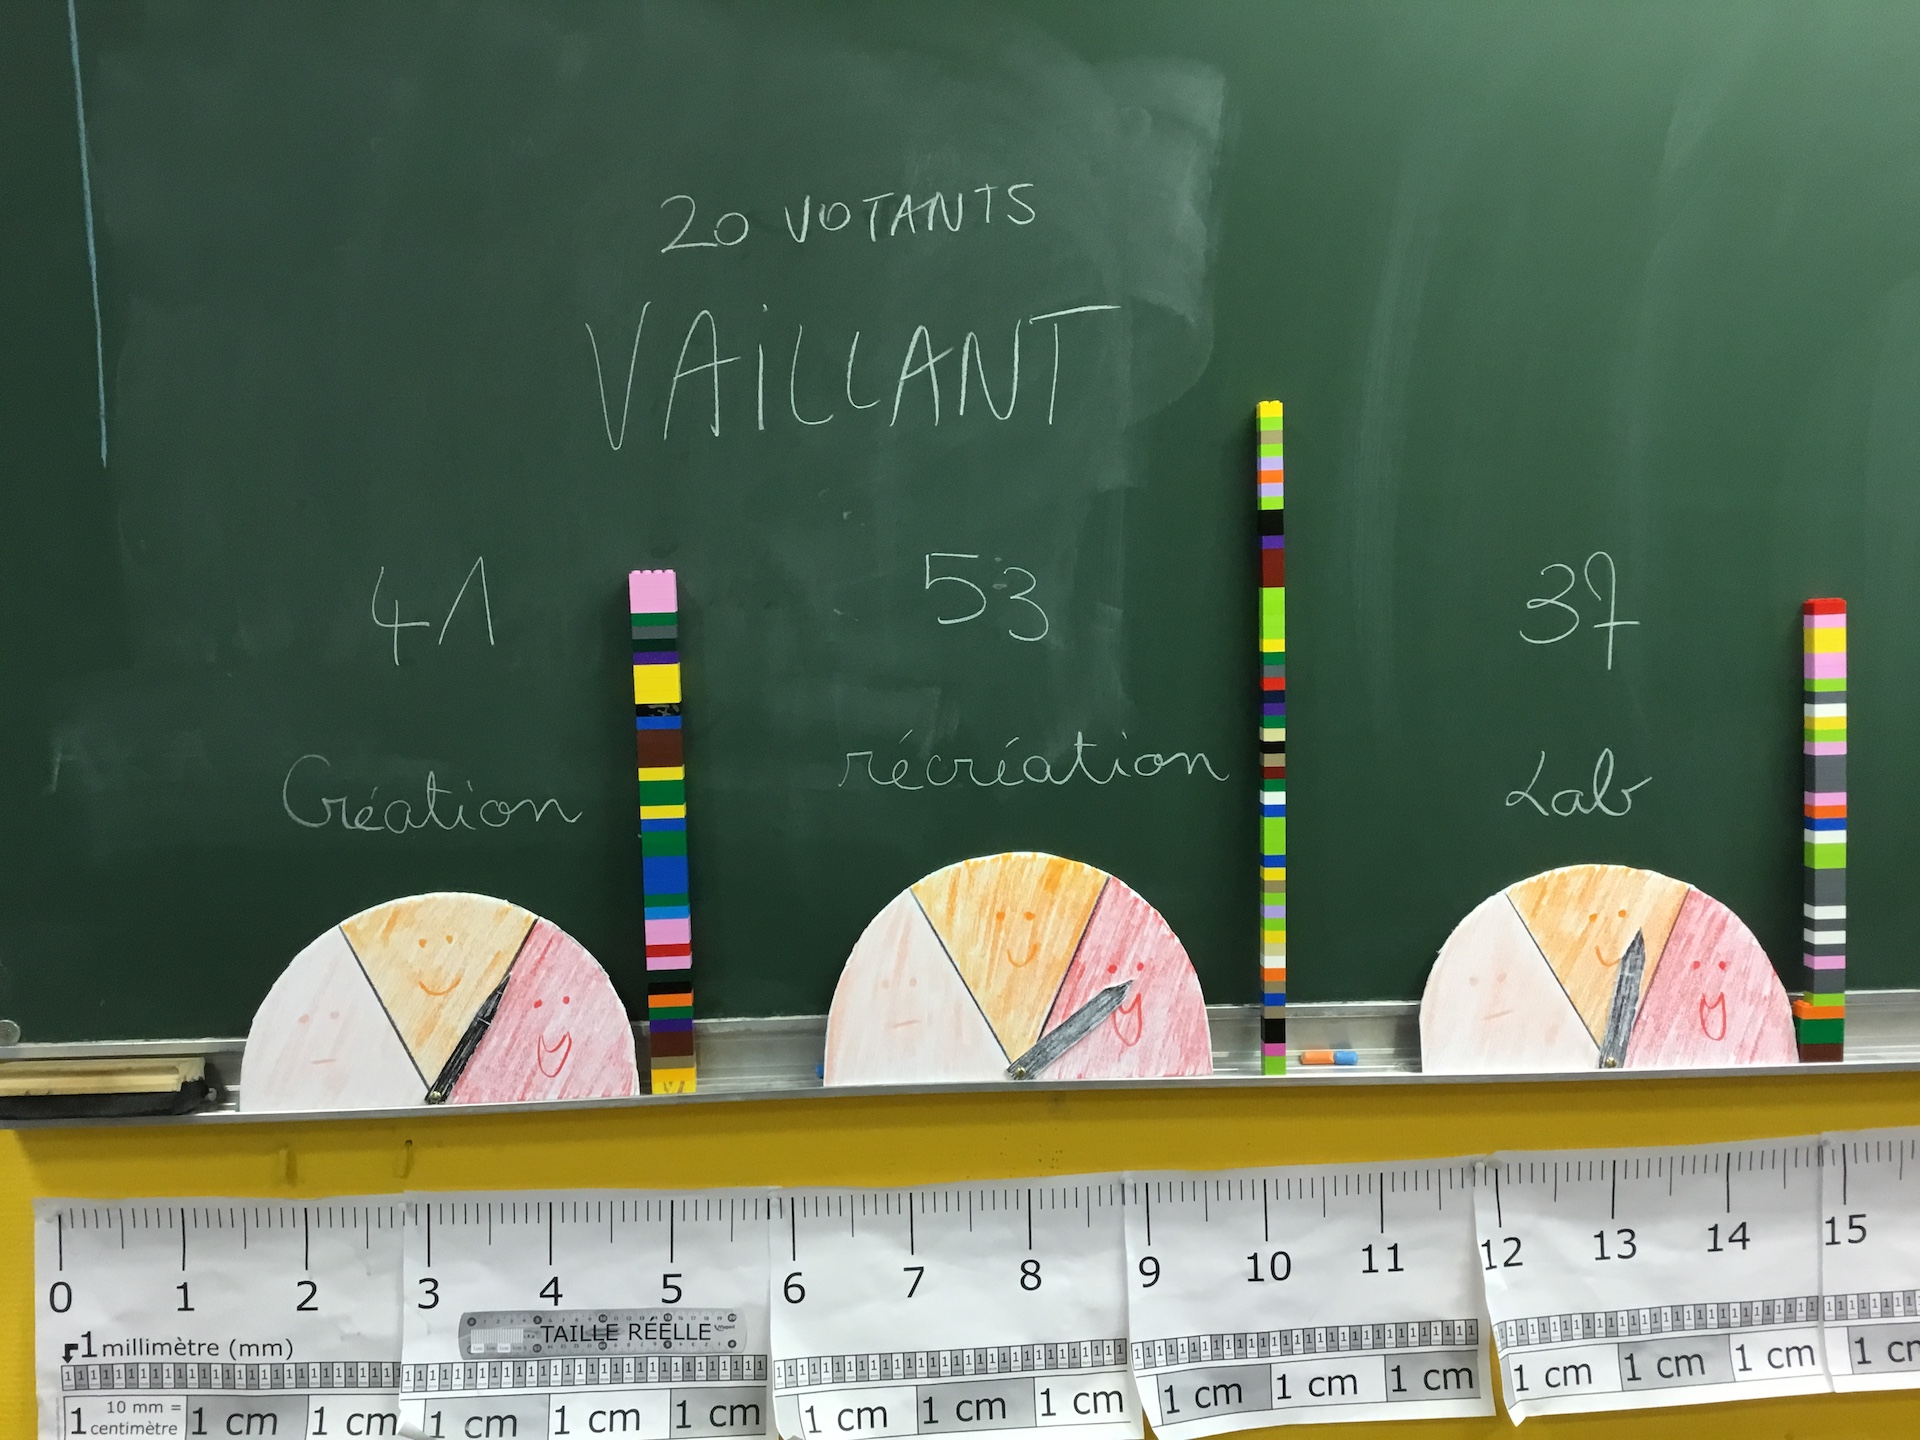 20 VOTANTS
VAiLLANT
41 53 37
Création récréation Lab
0 1 2 3 4 5 6 7 8 9 10 11 12 13 14 15
1 millimètre (mm)
TAILLE RÉELLE
1 10 mm = centimètre 1 cm 1 cm 1 cm 1 cm 1 cm 1 cm 1 cm 1 cm 1 cm 1 cm 1 cm 1 cm 1 cm 1 cm